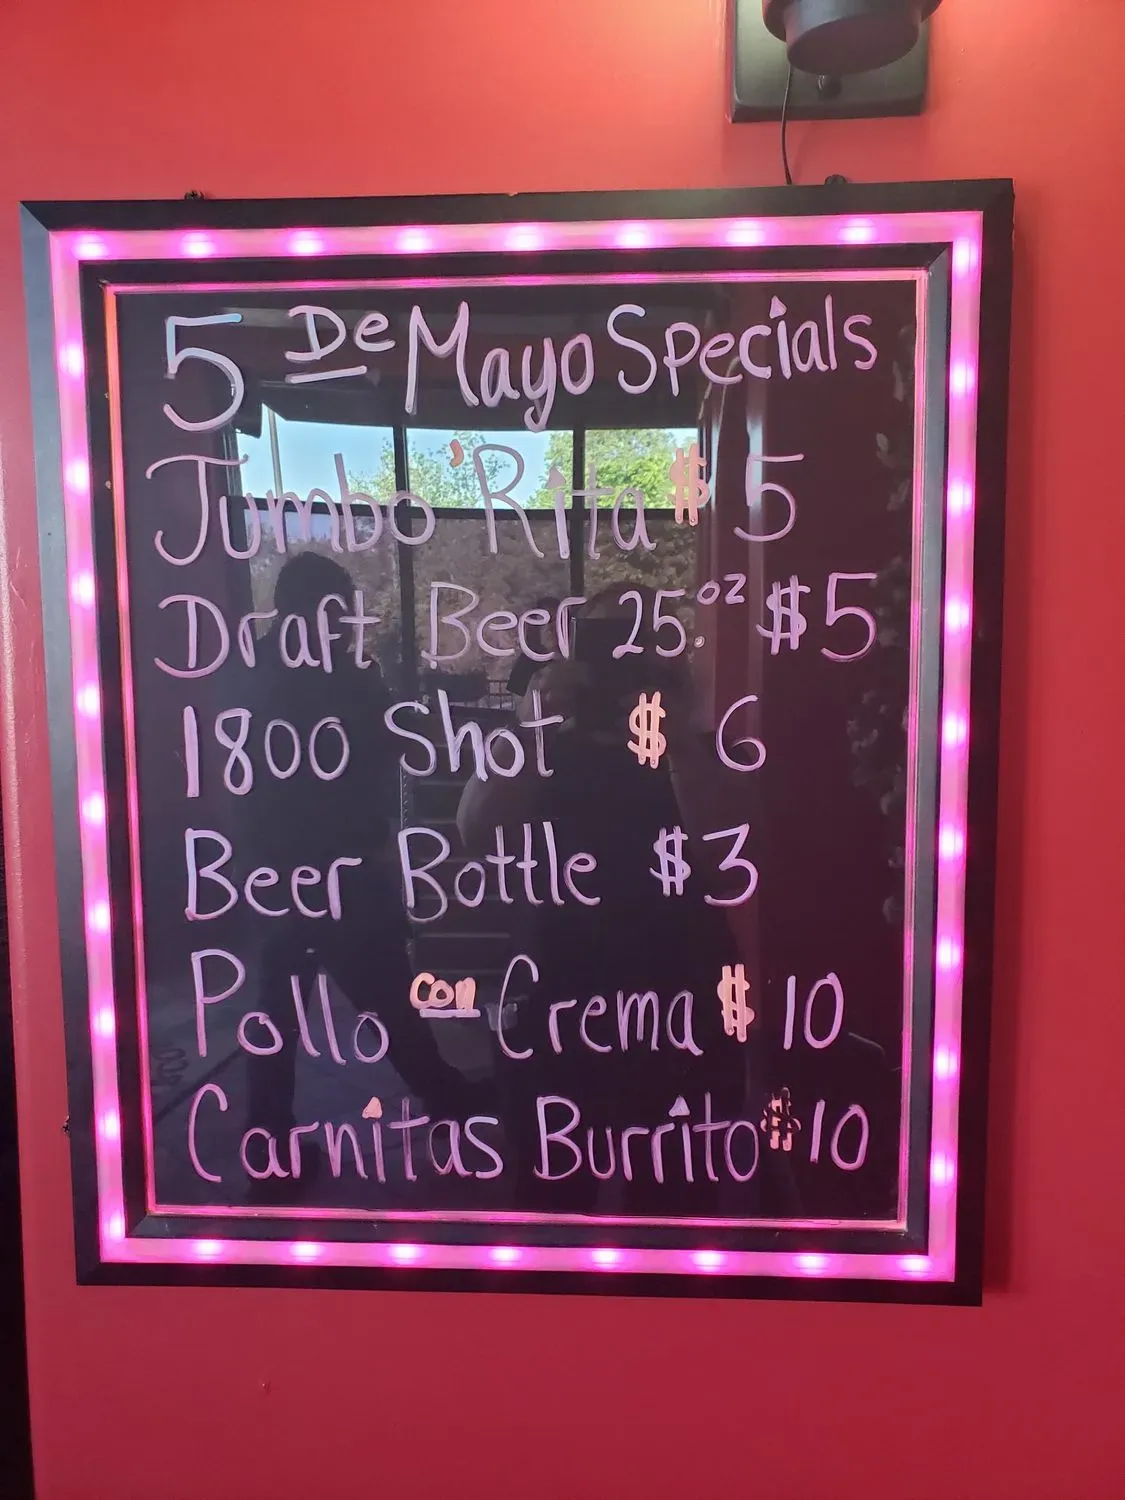 5 De Mayo Specials
Jumbo 'Rita $ 5
Draft Beer 25.oz $5
1800 Shot $ 6
Beer Bottle $3
Pollo con Crema $ 10
Carnitas Burrito $ 10